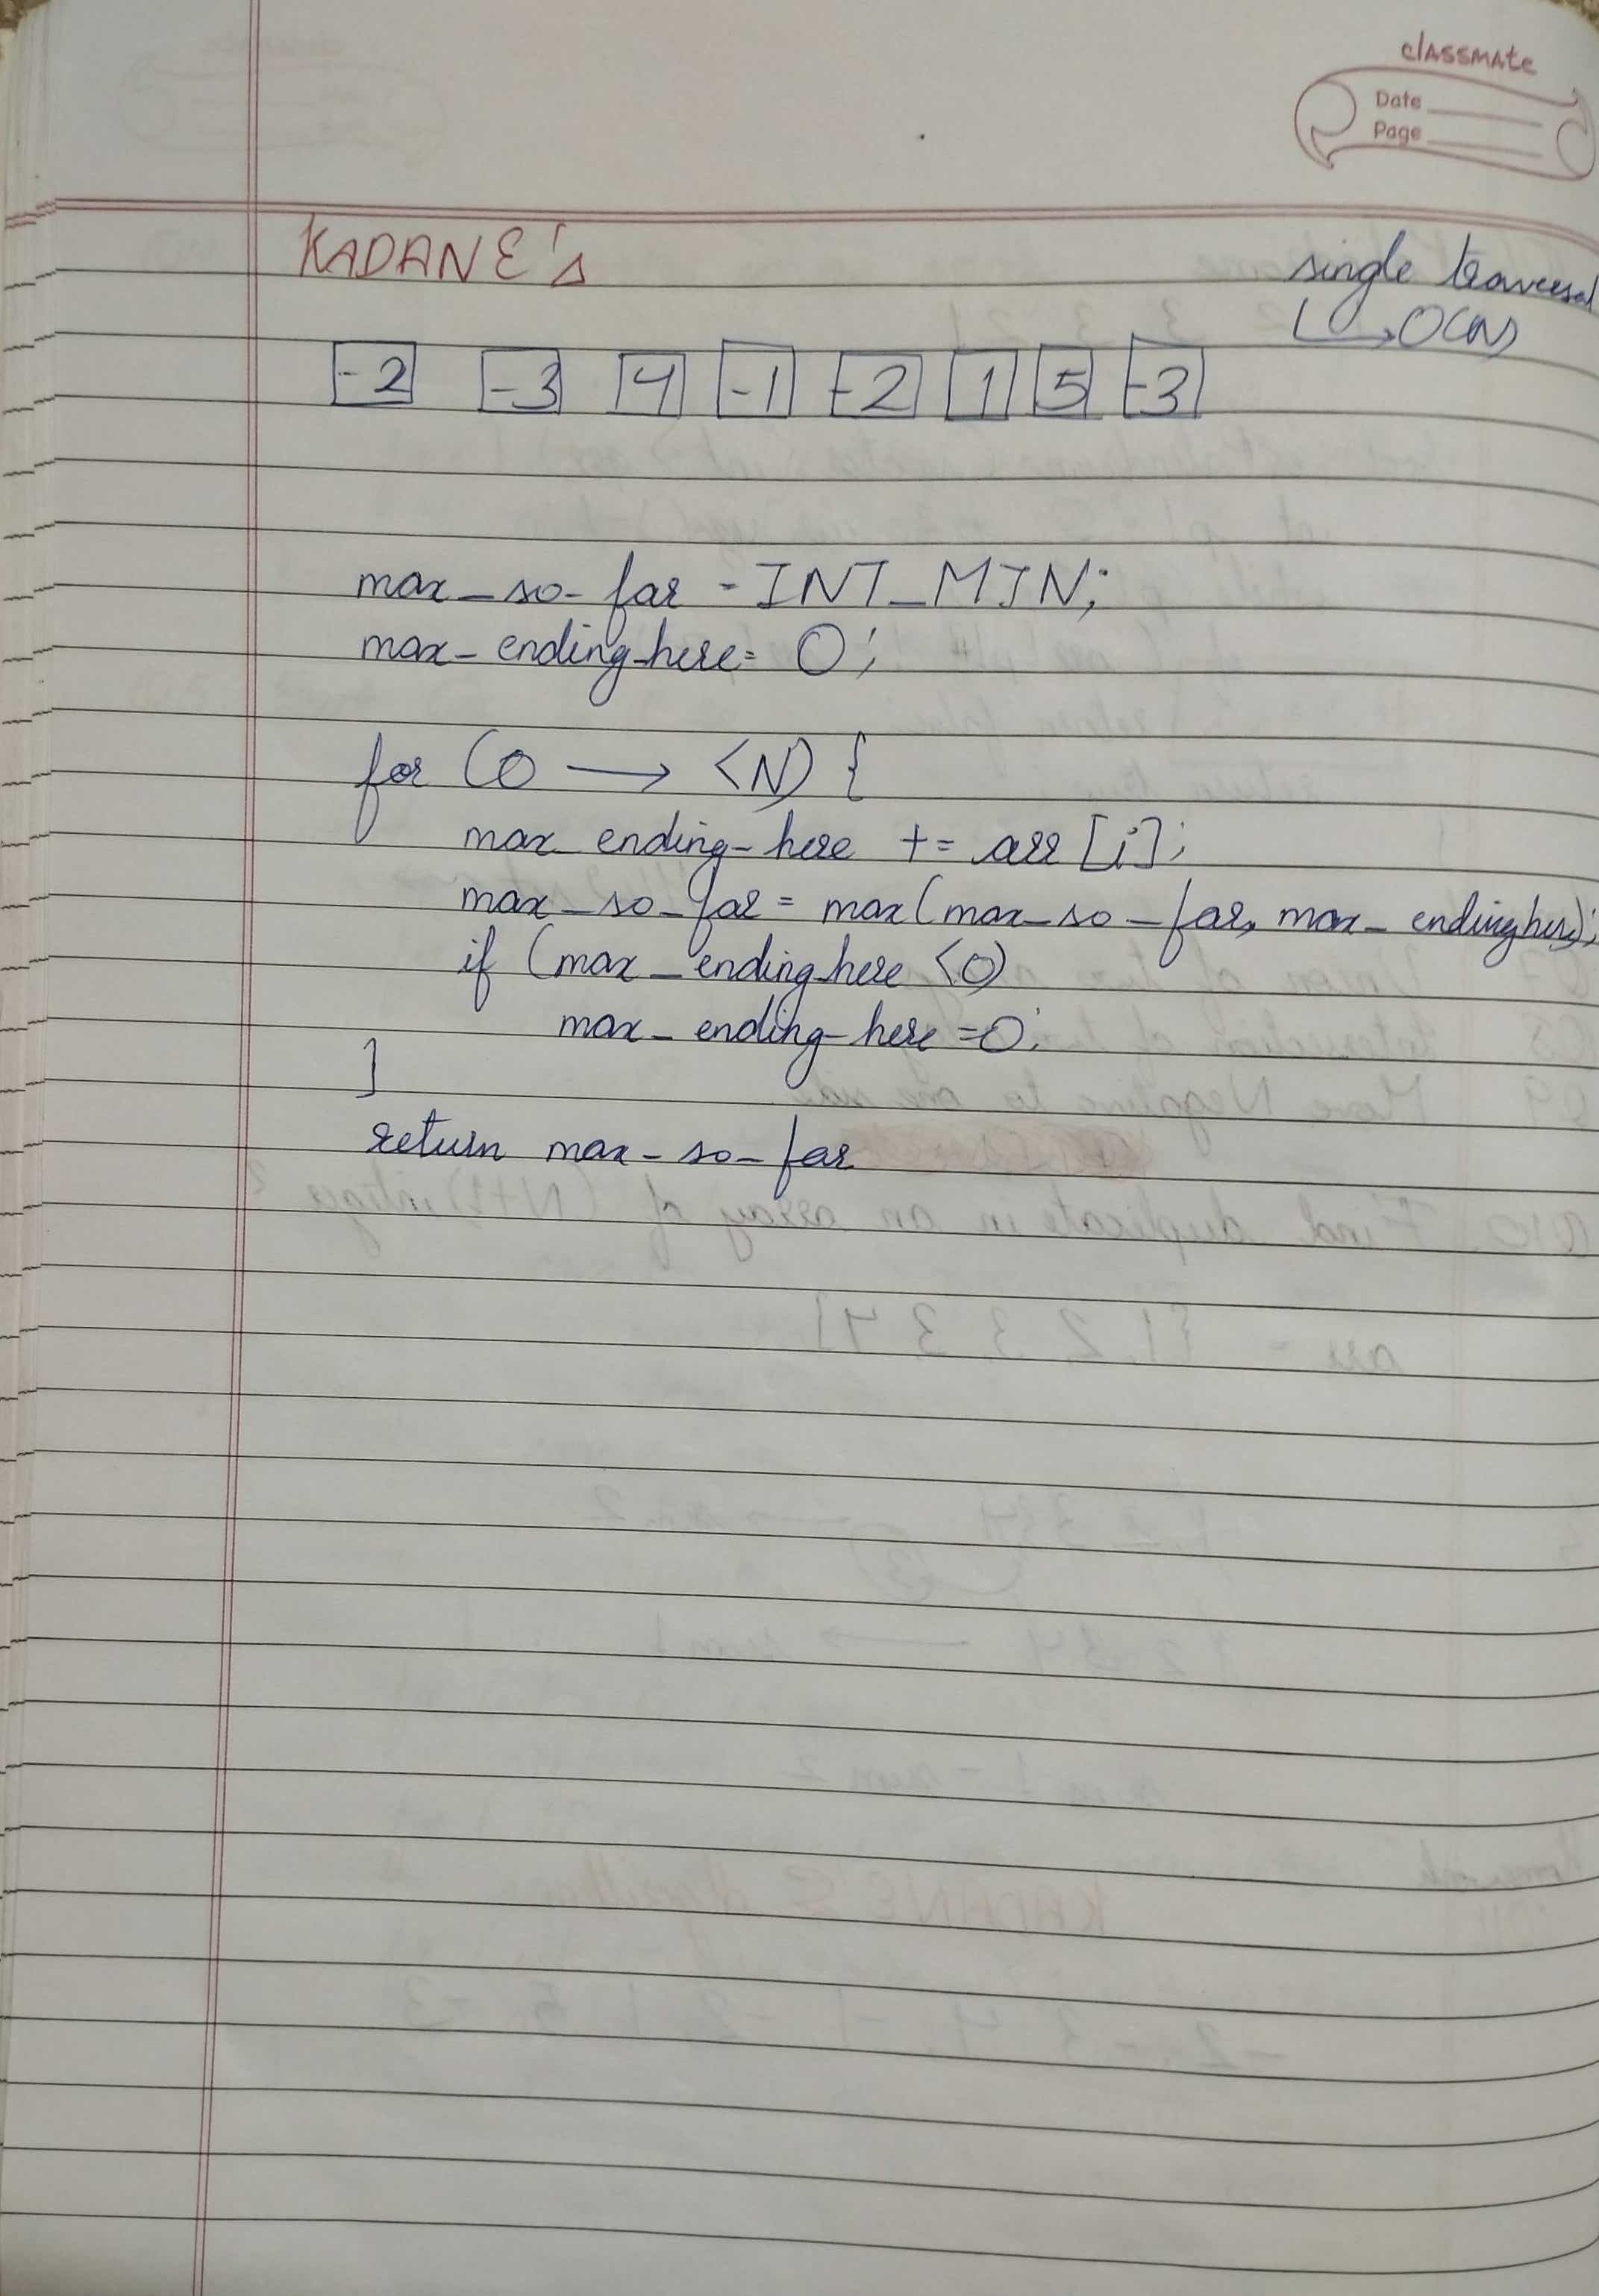 classmate
Date
Page
KADANE's
single traversal
O(N)
-2 -3 4 -1 -2 1 5 -3
max_so_far = INT_MIN;
max_ending_here = 0;
for (0 → <N) {
max_ending_here += arr[i];
max_so_far = max(max_so_far, max_ending here);
if (max_ending_here <0)
max_ending_here =0;
}
return max_so_far